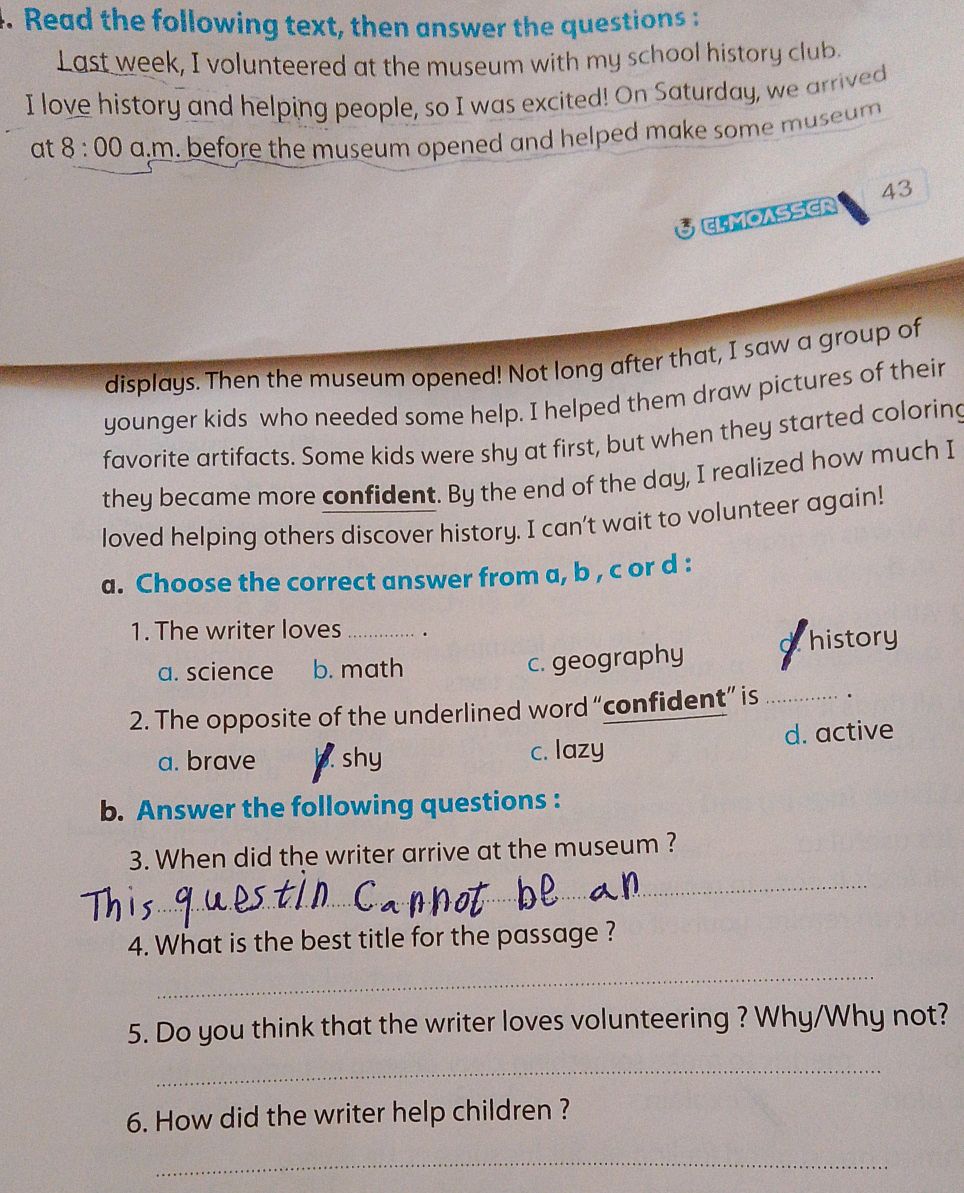 . Read the following text, then answer the questions :
Last week, I volunteered at the museum with my school history club.
I love history and helping people, so I was excited! On Saturday, we arrived
at 8 : 00 a.m. before the museum opened and helped make some museum
EL-MOASSER 43
displays. Then the museum opened! Not long after that, I saw a group of
younger kids who needed some help. I helped them draw pictures of their
favorite artifacts. Some kids were shy at first, but when they started coloring
they became more confident. By the end of the day, I realized how much I
loved helping others discover history. I can't wait to volunteer again!
a. Choose the correct answer from a, b , c or d :
1. The writer loves ............. .
a. science b. math c. geography d. history
2. The opposite of the underlined word “confident” is ............. .
a. brave b. shy c. lazy d. active
b. Answer the following questions :
3. When did the writer arrive at the museum ?
This questin Cannot be an
4. What is the best title for the passage ?
5. Do you think that the writer loves volunteering ? Why/Why not?
6. How did the writer help children ?